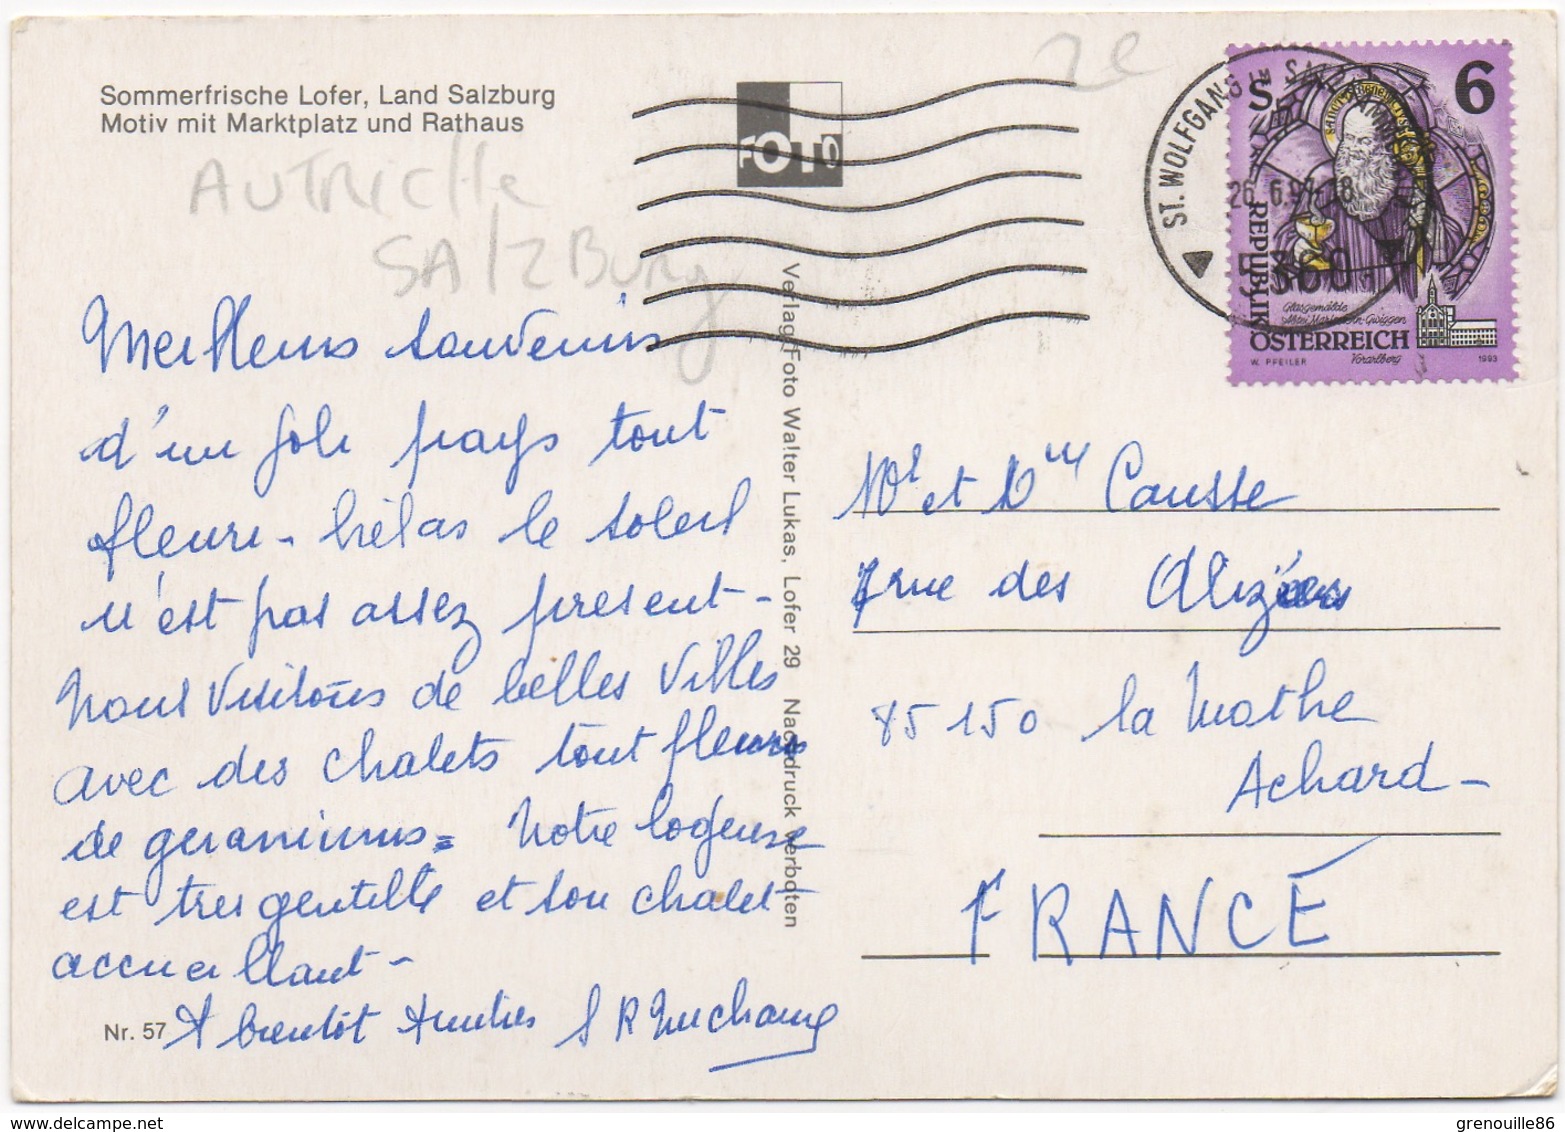 Sommerfrische Lofer, Land Salzburg
Motiv mit Marktplatz und Rathaus
AUTRICHE
SALZBurg
2e
FOTO
ST. WOLFGANG IM SALZ
26. 6.9 -18
5360
S 6
REPUBLIK
ÖSTERREICH
Glasgemälde
Mariastern-Gwiggen
Vorarlberg
W. PFEILER
1993
Meilleurs souvenirs
d'un joli pays tout
fleuri - hélas le soleil
n'est pas assez present -
Nous visitons de belles villes
avec des chalets tout fleuris
de geraniums = Notre logeuse
est tres gentille et son chalet
accueillant -
A bientôt Amities S R
Nr. 57
Verlag Foto Walter Lukas, Lofer 29 Nachdruck verboten
Mr et Mme Causse
7 rue des Alizées
85150 la Mothe
Achard -
FRANCE
www.delcampe.net
grenouille86